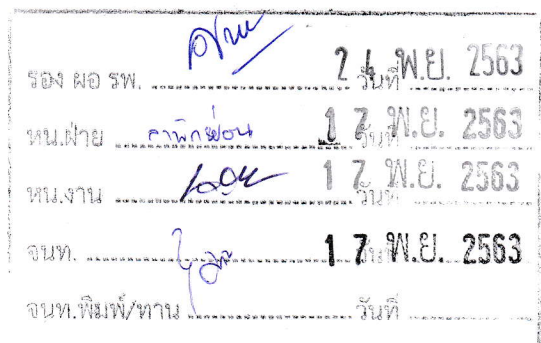 รอง ผอ รพ. วันที่ 24 พ.ย. 2563
หน.ฝ่าย ลาพักผ่อน วันที่ 17 พ.ย. 2563
หน.งาน วันที่ 17 พ.ย. 2563
จนท. วันที่ 17 พ.ย. 2563
จนท.พิมพ์/ทาน วันที่